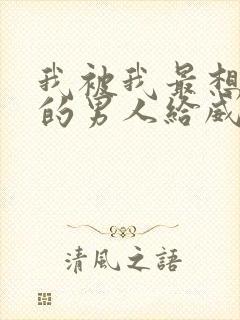 我被我最想
的男人给威
清風之語